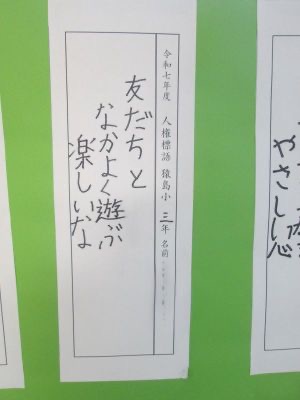 令和七年度 人権標語 猿島小 三年 名前
友だちと
なかよく遊ぶ
楽しいな
やさしい心